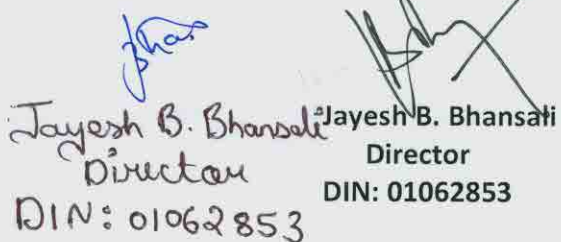 Jayesh B. Bhansali
Director
DIN: 01062853
Jayesh B. Bhansali
Director
DIN: 01062853